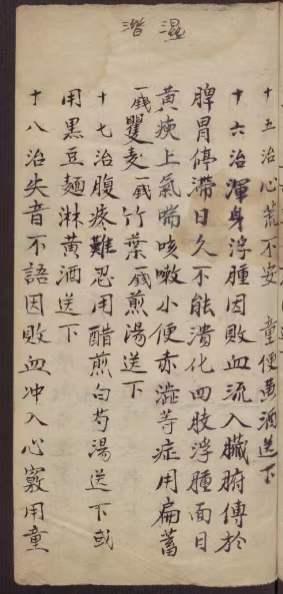 濕濇
十五治心荒不安 童便黃酒送下
十六治渾身浮腫因敗血流入臟腑傅於
脾胃停滯日久不能潰化四肢浮腫面目
黃瘓上氣喘咳嗽小便赤澁等症用扁蓄
一錢瞿麦一錢竹葉一錢煎湯送下
十七治腹疼難忍用醋煎白芍湯送下或
用黑豆麵淋黃酒送下
十八治失音不語因敗血冲入心竅用童